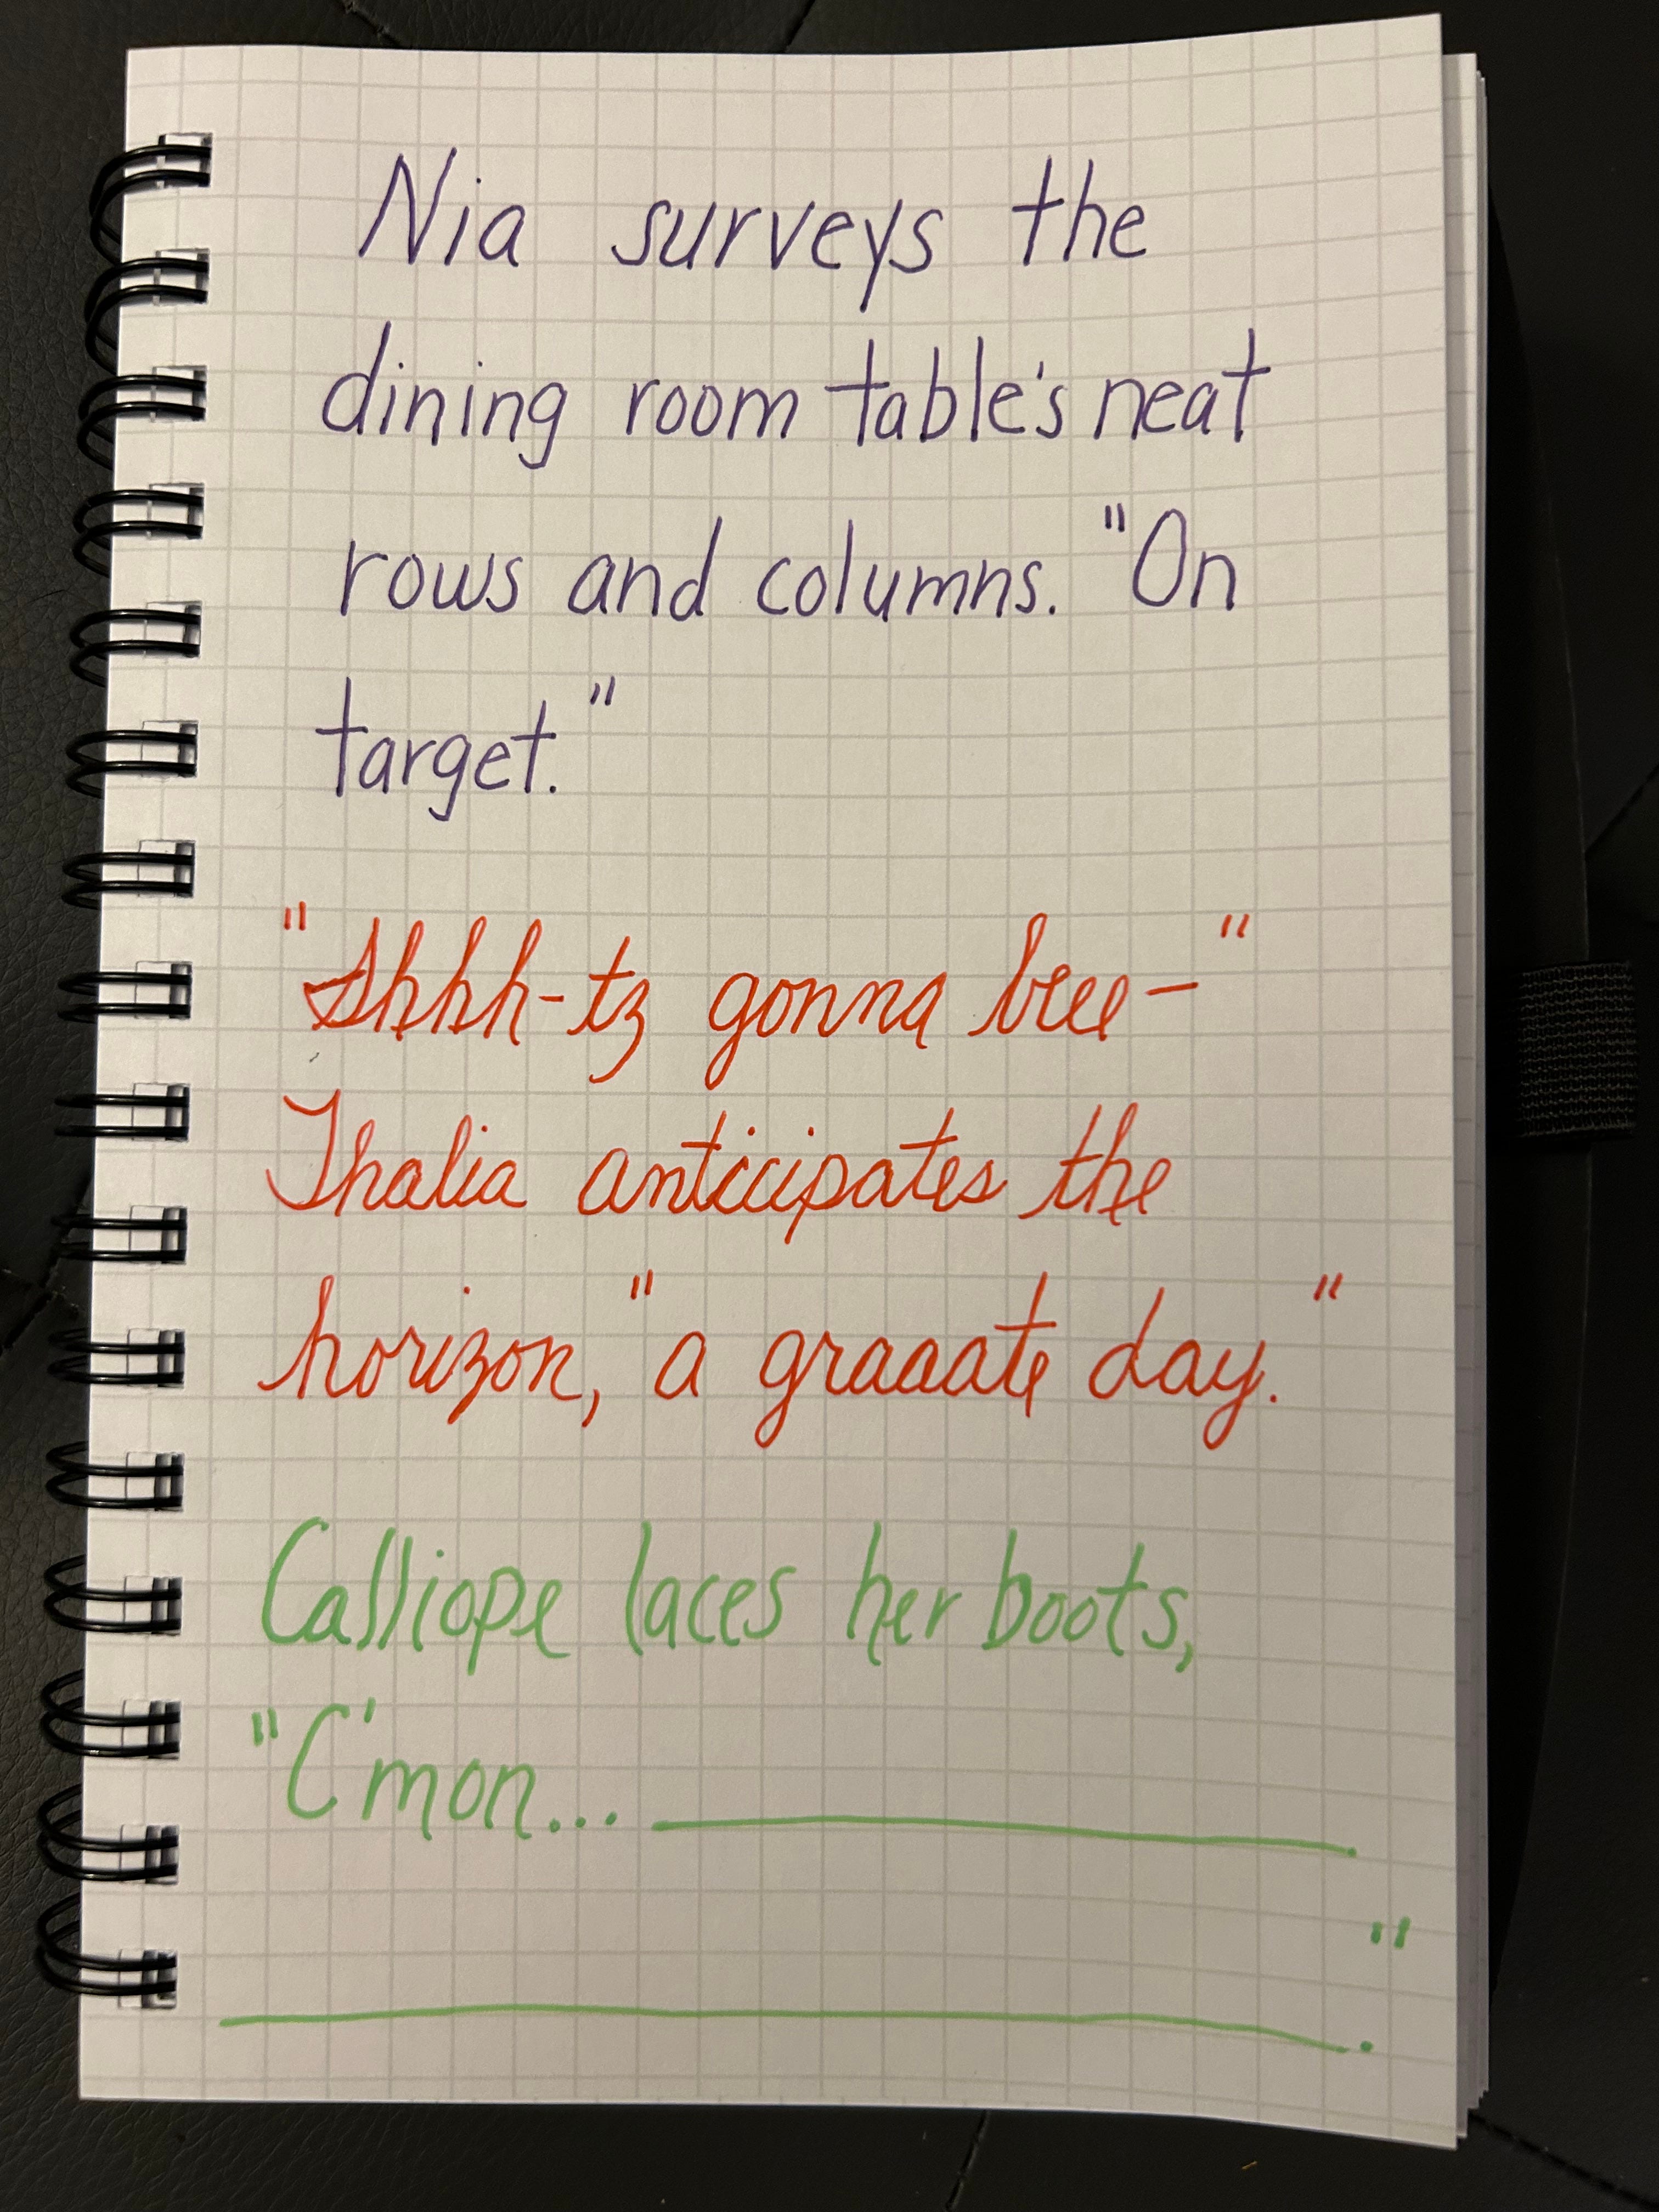 Nia surveys the
dining room table's neat
rows and columns. "On
target."
"Shhh-tz gonna beee-"
Thalia anticipates the
horizon, "a graaate day."
Calliope laces her boots,
"C'mon... ____________.
____________________."